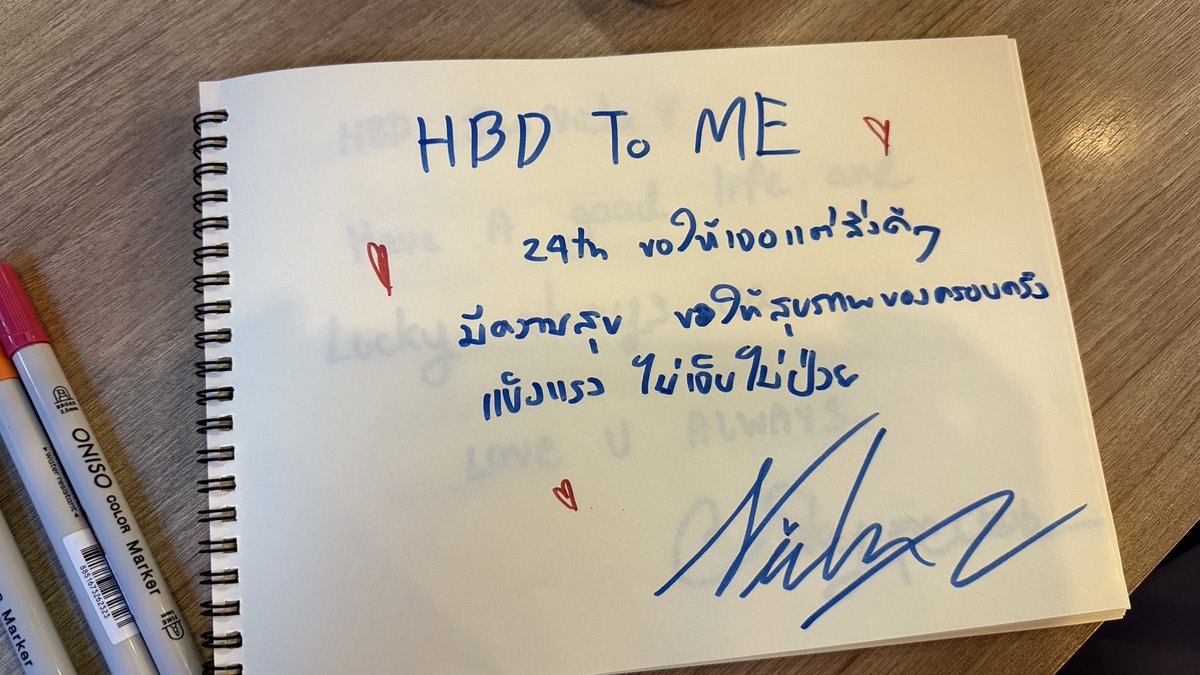 HBD To ME
24th ขอให้เจอแต่สิ่งดีๆ
มีความสุข ขอให้สุขภาพของครอบครัว
แข็งแรง ไม่เจ็บไม่ป่วย
HBD
Have A good life and
Lucky
LOVE U ALWAYS
BROAD
2.0mm
ONISO COLOR Marker
Water resistant
FINE
8851673262323
Marker